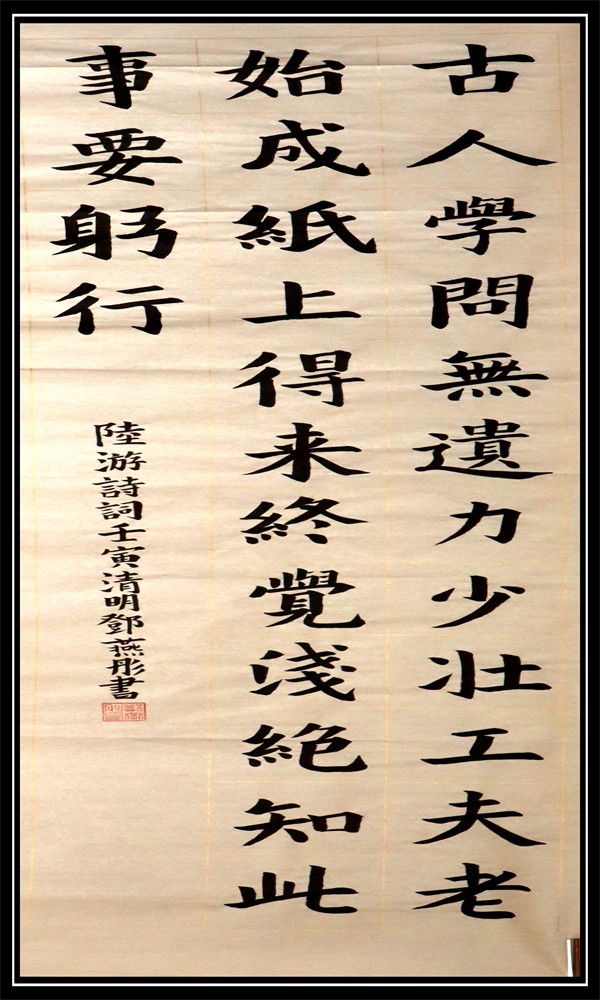 古人學問無遺力少壯工夫老
始成紙上得来終覺淺絕知此
事要躬行
陸游詩詞壬寅清明鄧燕彤書